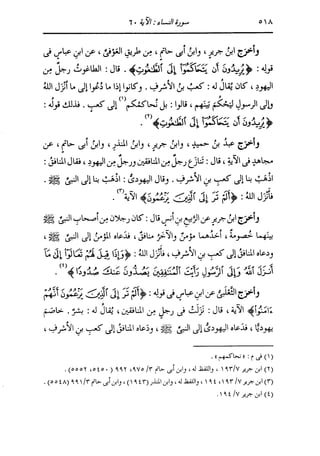 ٥١٨
سورة النساء : الآية ٦٠
وأخرَج ابنُ جريرٍ ، وابنُ أبى حاتمٍ ، مِن طريقِ العَوْفىِّ ، عن ابنِ عباسٍ فى
قولِه : ﴿يُرِيدُونَ أَن يَتَحَاكَمُوٓا۟ إِلَى ٱلطَّـٰغُوتِ﴾ . قال : الطاغوتُ رجلٌ مِن
اليهودِ ، كان يُقالُ له : كعبُ بنُ الأشرفِ . وكانوا إذا ما دُعُوا إلى ما أَنزَل اللهُ
وإلى الرسولِ ليَحْكُمَ بينَهم ، قالوا : بل نُحاكِمُكم(١) إلى كعبٍ . فذلك قولُه :
﴿يُرِيدُونَ أَن يَتَحَاكَمُوٓا۟ إِلَى ٱلطَّـٰغُوتِ﴾(٢) .
وأخرَج عبدُ بنُ حميدٍ ، وابنُ جريرٍ ، وابنُ المنذرِ ، وابنُ أبى حاتمٍ ، عن
مجاهدٍ فى الآيةِ ، قال : تنازَع رجلٌ مِن المنافقين ورجلٌ مِن اليهودِ ، فقال المنافقُ :
اذهَبْ بنا إلى كعبِ بنِ الأشرفِ . وقال اليهودىُّ : اذهَبْ بنا إلى النبىِّ ﷺ .
فأنزَل اللهُ : ﴿أَلَمْ تَرَ إِلَى ٱلَّذِينَ يَزْعُمُونَ﴾ الآية(٣) .
وأخرَج ابنُ جريرٍ عن الربيعِ بنِ أنسٍ قال : كان رجلان مِن أصحابِ النبىِّ ﷺ
بينَهما خصومةٌ ، أحدُهما مؤمنٌ والآخرُ منافقٌ ، فدعاه المؤمنُ إلى النبىِّ ﷺ ،
ودعاه المنافقُ إلى كعبِ بنِ الأشرفِ ، فأنزَل اللهُ : ﴿وَإِذَا قِيلَ لَهُمْ تَعَالَوْا۟ إِلَىٰ مَآ
أَنزَلَ ٱللَّهُ وَإِلَى ٱلرَّسُولِ رَأَيْتَ ٱلْمُنَـٰفِقِينَ يَصُدُّونَ عَنكَ صُدُودًا﴾(٤) .
وأخرَج الثَّعْلَبىُّ عن ابنِ عباسٍ فى قولِه : ﴿أَلَمْ تَرَ إِلَى ٱلَّذِينَ يَزْعُمُونَ أَنَّهُمْ
ءَامَنُوا۟﴾ الآية ، قال : نزَلت فى رجلٍ مِن المنافقين ، يُقالُ له : بِشْرٌ . خاصَم
يهوديًّا ، فدعاه اليهودىُّ إلى النبىِّ ﷺ ، ودعاه المنافقُ إلى كعبِ بنِ الأشرفِ ،
(١) فى م : «نحاكمهم» .
(٢) ابن جرير ٧/ ١٩٣، واللفظ له ، وابن أبى حاتم ٣/ ٩٧٥، ٩٩٢ (٥٤٥٠، ٥٥٥٢) .
(٣) ابن جرير ٧/ ١٩٣، ١٩٤، واللفظ له ، وابن المنذر (١٩٤٣) ، وابن أبى حاتم ٣/ ٩٩١ (٥٥٤٨) .
(٤) ابن جرير ٧/ ١٩٤.